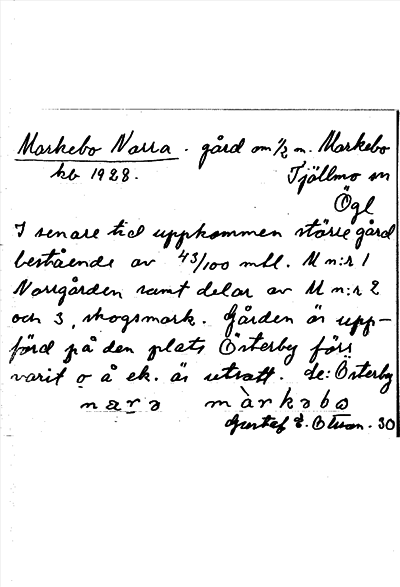 Markebo Norra. gård om ½ m. Markebo
kb 1928. Tjällmo sn
Ögl
I senare tid uppkommen större gård
bestående av 43/100 mtl. M n:r 1
Norrgården samt delar av M n:r 2
och 3, skogsmark. Gården är upp-
förd på den plats Österby förr
varit o å ek. är utsatt. se: Österby
nærə màrkəbo
Gustaf E. 30